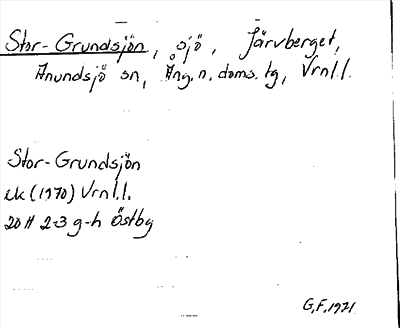 Stor-Grundsjön, sjö, Järvberget,
Anundsjö sn, Ång.n.doms.tg, Vrnl.l.
Stor-Grundsjön
ek (1970) Vrnl.l.
20 H 2-3 g-h Östby
G.F. 1971